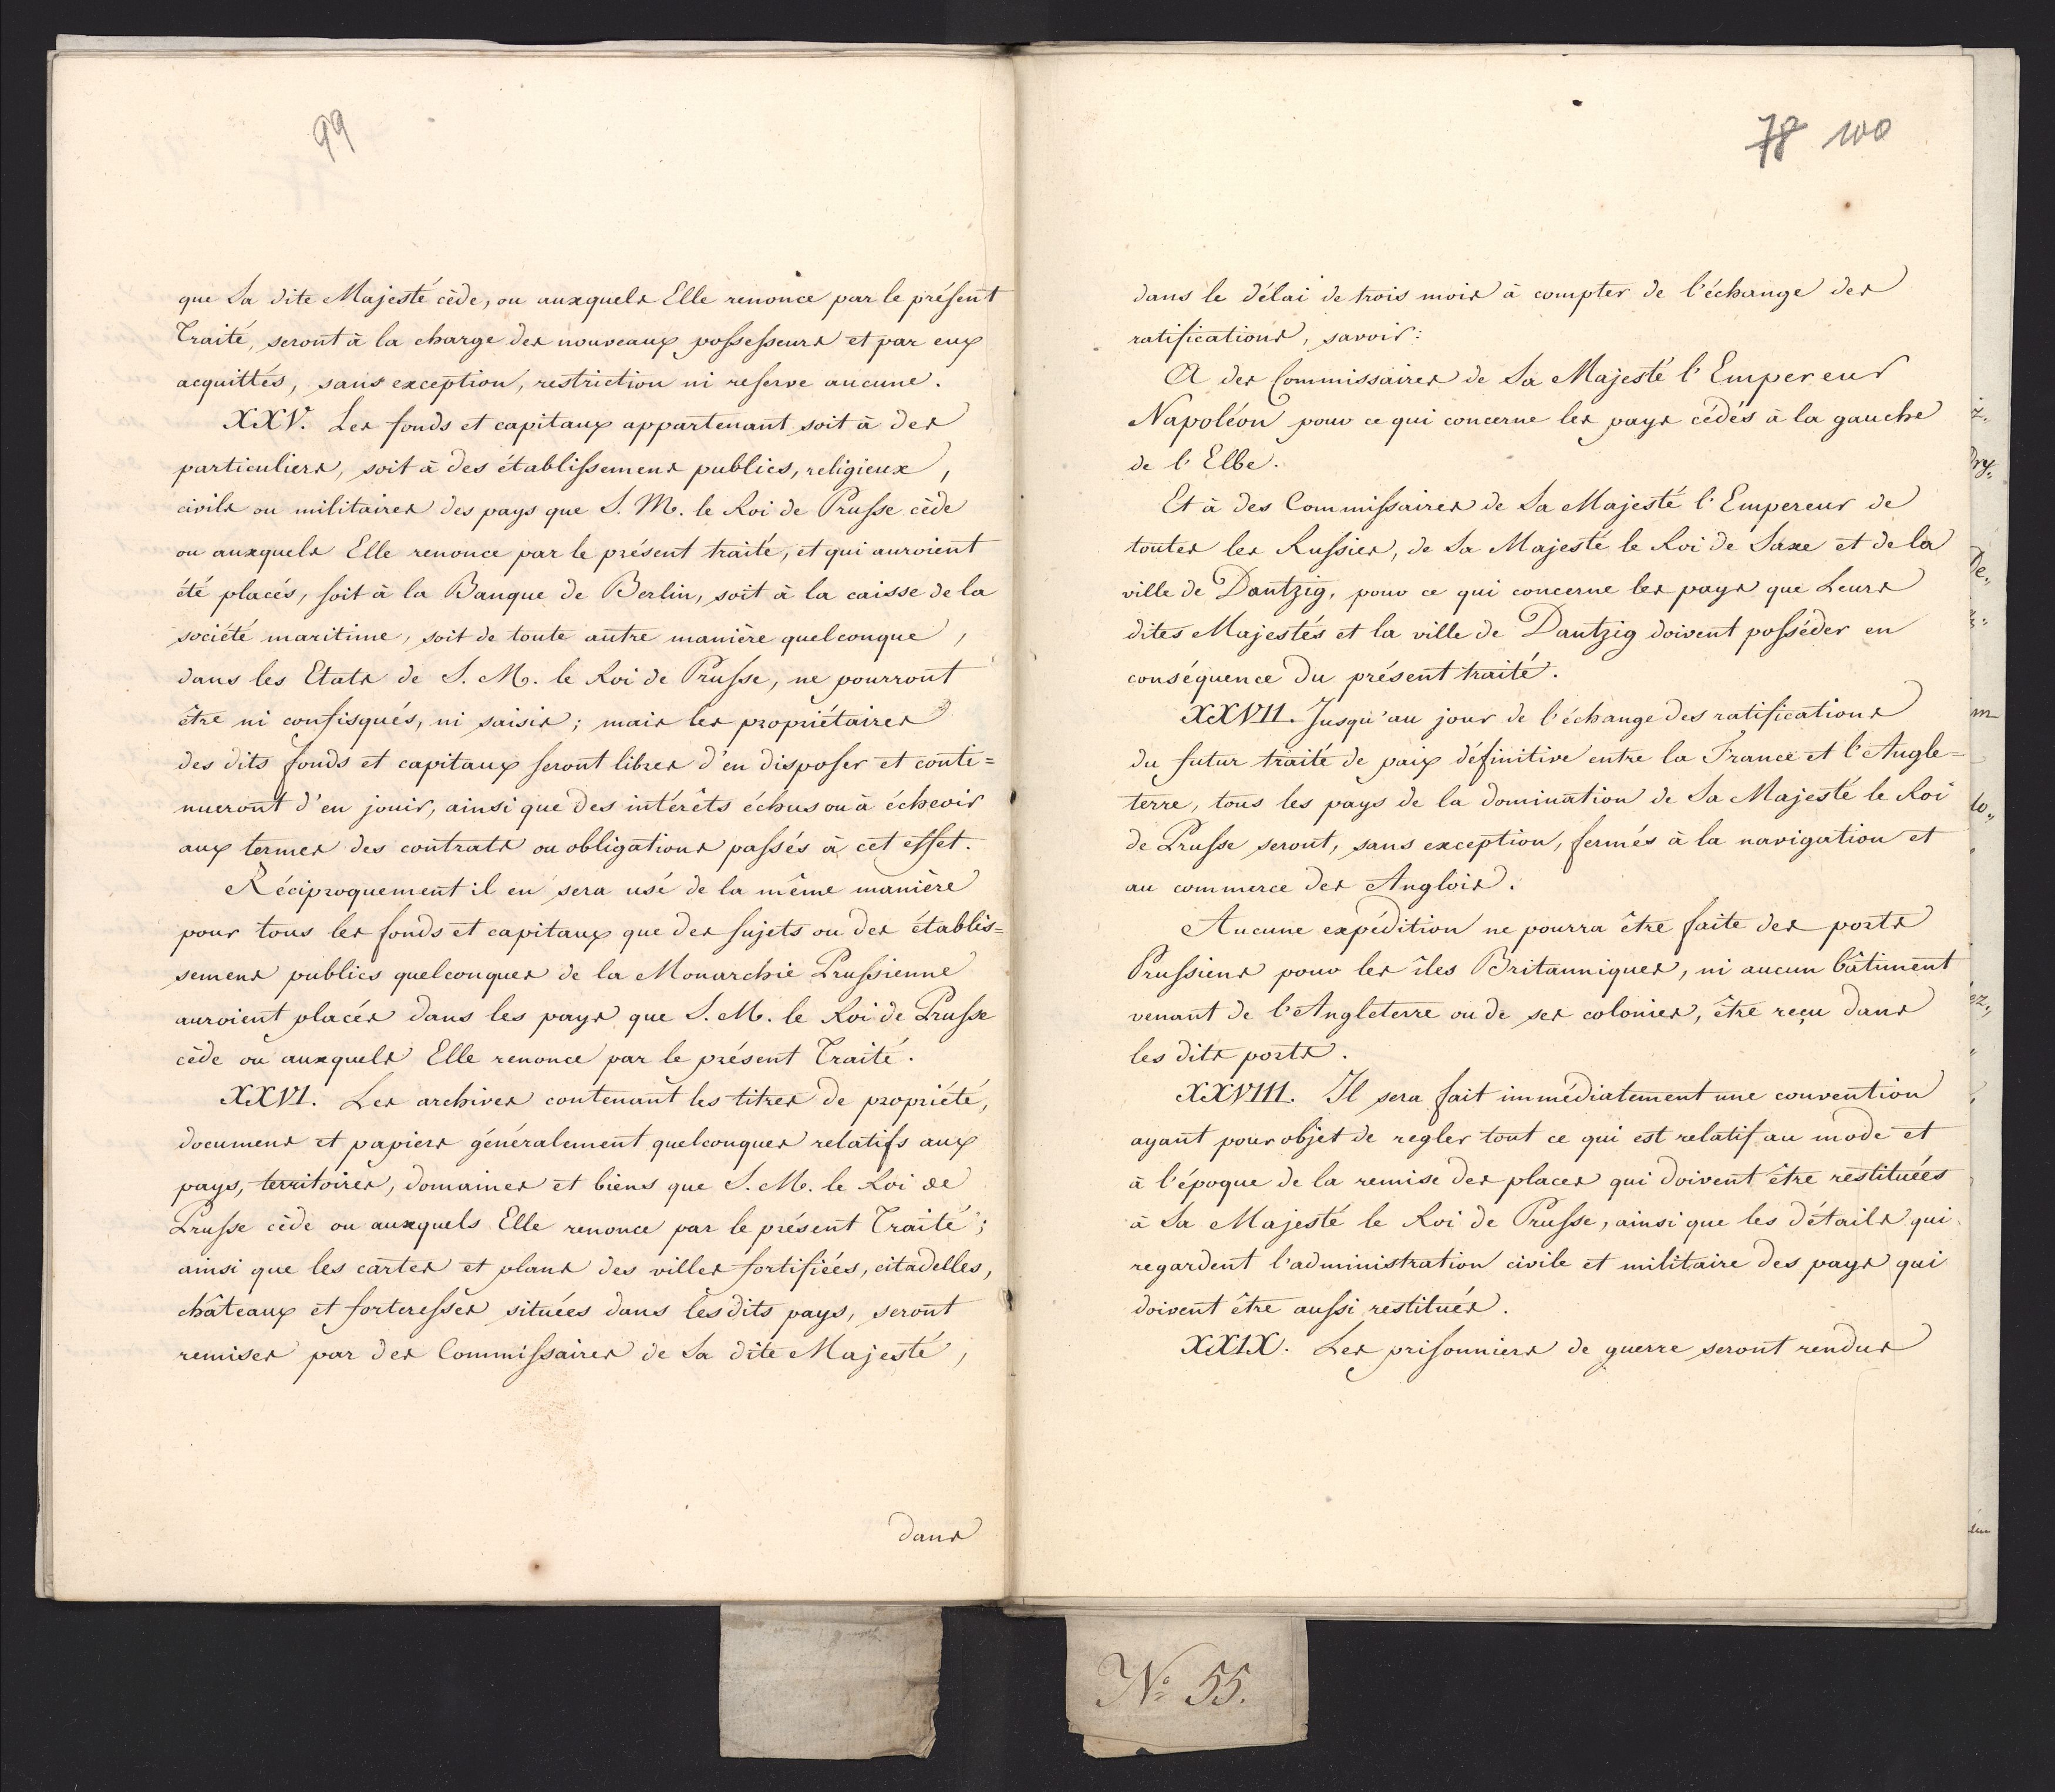 99
que Sa dite Majesté cède, ou auxquels Elle renonce par le présent
Traité, seront à la charge des nouveaux possesseurs et par eux
acquittés, sans exception, restriction ni reserve aucune.
XXV. Les fonds et capitaux appartenant soit à des
particuliers, soit à des établissemens publics, religieux,
civils ou militaires des pays que S. M. le Roi de Prusse cède
ou auxquels Elle renonce par le présent traité, et qui auroient
été placés, soit à la Banque de Berlin, soit à la caisse de la
société maritime, soit de toute autre manière quelconque,
dans les Etats de S. M. le Roi de Prusse, ne pourront
être ni confisqués, ni saisis; mais les propriétaires
des dits fonds et capitaux seront libres d'en disposer et conti=
nueront d'en jouir, ainsi que des intérêts échus ou à écheoir
aux termes des contrats ou obligations passés à cet effet.
Réciproquement il en sera usé de la même manière
pour tous les fonds et capitaux que des sujets ou des établis=
semens publics quelconques de la Monarchie Prussienne
auroient placés dans les pays que S. M. le Roi de Prusse
cède ou auxquels Elle renonce par le présent Traité.
XXVI. Les archives contenant les titres de propriété,
documens et papiers généralement quelconques relatifs aux
pays, territoires, domaines et biens que S. M. le Roi de
Prusse cède ou auxquels Elle renonce par le présent Traité;
ainsi que les cartes et plans des villes fortifiées, citadelles,
châteaux et forteresses situées dans les dits pays, seront
remises par des Commissaires de Sa dite Majesté,
dans
78 100
dans le délai de trois mois à compter de l'échange des
ratifications, savoir:
A des Commissaires de Sa Majesté l'Empereur
Napoléon pour ce qui concerne les pays cédés à la gauche
de l'Elbe.
Et à des Commissaires de Sa Majesté l'Empereur de
toutes les Russies, de Sa Majesté le Roi de Saxe et de la
ville de Dantzig, pour ce qui concerne les pays que Leurs
dites Majestés et la ville de Dantzig doivent posséder en
conséquence du présent traité.
XXVII. Jusqu'au jour de l'échange des ratifications
du futur traité de paix définitive entre la France et l'Angle=
terre, tous les pays de la domination de Sa Majesté le Roi
de Prusse seront, sans exception, fermés à la navigation et
au commerce des Anglois.
Aucune expédition ne pourra être faite des ports
Prussiens pour les îles Britanniques, ni aucun bâtiment
venant de l'Angleterre ou de ses colonies, être reçu dans
les dits ports.
XXVIII. Il sera fait immédiatement une convention
ayant pour objet de regler tout ce qui est relatif au mode et
à l'époque de la remise des places qui doivent être restituées
à Sa Majesté le Roi de Prusse, ainsi que les détails qui
regardent l'administration civile et militaire des pays qui
doivent être aussi restitués.
XXIX. Les prisonniers de guerre seront rendus
No 55.